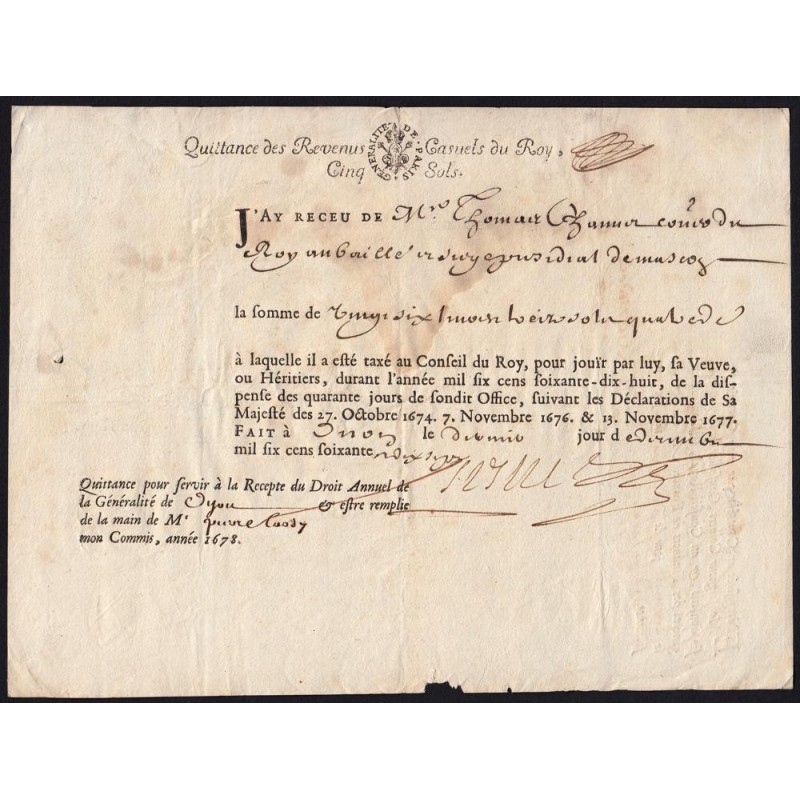 GENERALITE DE PARIS
Quittance des Revenus Casuels du Roy,
Cinq Sols.
J'AY RECEU DE Mre Thomas
Roy au baillage presidial de mascon
la somme de vingt six livres sols
à laquelle il a esté taxé au Conseil du Roy, pour jouïr par luy, sa Veuve,
ou Héritiers, durant l'année mil six cens soixante-dix-huit, de la dis-
pense des quarante jours de sondit Office, suivant les Déclarations de Sa
Majesté des 27. Octobre 1674. 7. Novembre 1676. & 13. Novembre 1677.
FAIT à le jour de
mil six cens soixante
Quittance pour servir à la Recepte du Droit Annuel de
la Généralité de Dyon & estre remplie
de la main de Mr pierre
mon Commis, année 1678.